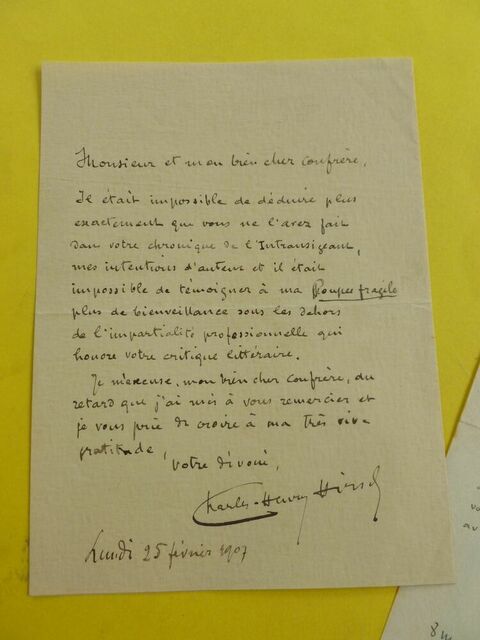 Monsieur et mon bien cher Confrère,
Il était impossible de déduire plus
exactement que vous ne l'avez fait
dans votre chronique de l'Intransigeant,
mes intentions d'auteur et il était
impossible de témoigner à ma Poupée fragile
plus de bienveillance sous les dehors
de l'impartialité professionnelle qui
honore votre critique littéraire.
Je m'excuse, mon bien cher Confrère, du
retard que j'ai mis à vous remercier et
je vous prie de croire à ma très vive
gratitude,
Votre dévoué,
Charles-Henry Hirsch
Lundi 25 février 1907
vo
av
8 m